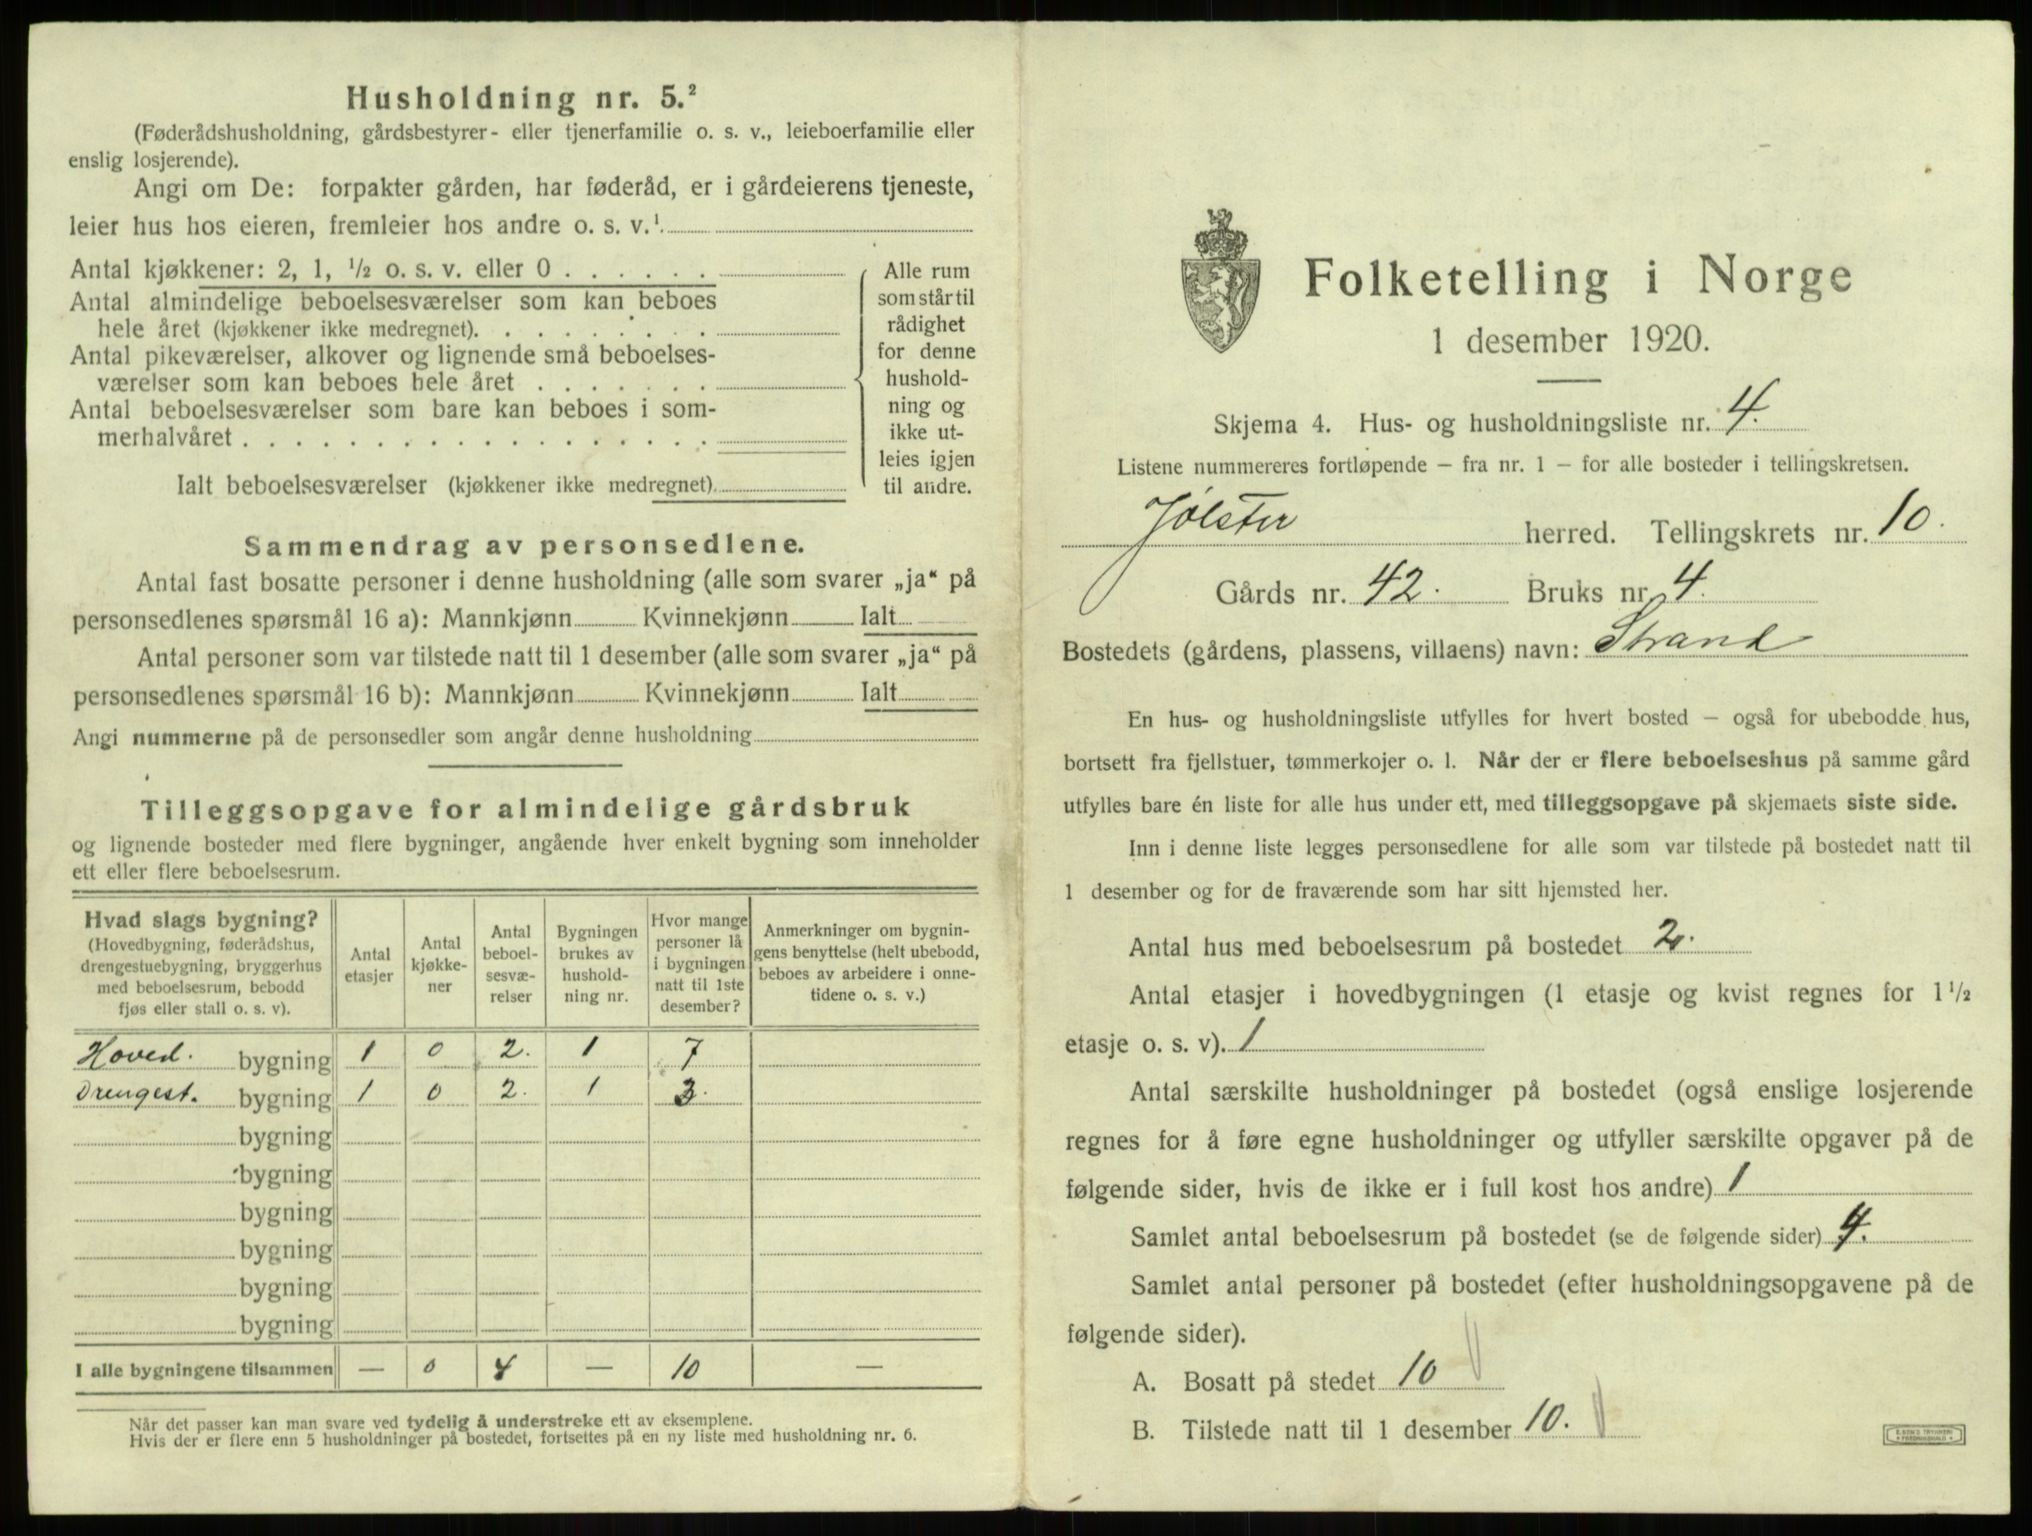 Husholdning nr. 5.²
(Føderådshusholdning, gårdsbestyrer- eller tjenerfamilie o. s. v., leieboerfamilie eller
enslig losjerende).
Angi om De: forpakter gården, har føderåd, er i gårdeierens tjeneste,
leier hus hos eieren, fremleier hos andre o. s. v.¹
Antal kjøkkener: 2, 1, ½ o. s. v. eller 0 . . . . . .
Antal almindelige beboelsesværelser som kan beboes
hele året (kjøkkener ikke medregnet). . . . . . . . . .
Antal pikeværelser, alkover og lignende små beboelses-
værelser som kan beboes hele året . . . . . . .
Antal beboelsesværelser som bare kan beboes i som-
merhalvåret . . . . . . . . . . . . . . . . . .
Ialt beboelsesværelser (kjøkkener ikke medregnet).
Alle rum
som står til
rådighet
for denne
hushold-
ning og
ikke ut-
leies igjen
til andre.
Sammendrag av personsedlene.
Antal fast bosatte personer i denne husholdning (alle som svarer „ja“ på
personsedlenes spørsmål 16 a): Mannkjønn Kvinnekjønn Ialt
Antal personer som var tilstede natt til 1 desember (alle som svarer „ja“ på
personsedlenes spørsmål 16 b): Mannkjønn Kvinnekjønn Ialt
Angi nummerne på de personsedler som angår denne husholdning
Tilleggsopgave for almindelige gårdsbruk
og lignende bosteder med flere bygninger, angående hver enkelt bygning som inneholder
ett eller flere beboelsesrum.
Hvad slags bygning?
(Hovedbygning, føderådshus,
drengestuebygning, bryggerhus
med beboelsesrum, bebodd
fjøs eller stall o. s. v).
Antal
etasjer
Antal
kjøkke-
ner
Antal
beboel-
sesvæ-
relser
Bygningen
brukes av
hushold-
ning nr.
Hvor mange
personer lå
i bygningen
natt til 1ste
desember?
Anmerkninger om bygnin-
gens benyttelse (helt ubebodd,
beboes av arbeidere i onne-
tidene o. s. v.)
Hoved. bygning 1 0 2. 1 7
Drengest. bygning 1 0 2. 1 3.
bygning
bygning
bygning
bygning
bygning
bygning
I alle bygningene tilsammen — 0 4 — 10 —
Når det passer kan man svare ved tydelig å understreke ett av eksemplene.
Hvis der er flere enn 5 husholdninger på bostedet, fortsettes på en ny liste med husholdning nr. 6.
Folketelling i Norge
1 desember 1920.
Skjema 4. Hus- og husholdningsliste nr. 4.
Listene nummereres fortløpende – fra nr. 1 – for alle bosteder i tellingskretsen.
Jølster herred. Tellingskrets nr. 10.
Gårds nr. 42. Bruks nr. 4.
Bostedets (gårdens, plassens, villaens) navn: Strand
En hus- og husholdningsliste utfylles for hvert bosted – også for ubebodde hus,
bortsett fra fjellstuer, tømmerkojer o. l. Når der er flere beboelseshus på samme gård
utfylles bare én liste for alle hus under ett, med tilleggsopgave på skjemaets siste side.
Inn i denne liste legges personsedlene for alle som var tilstede på bostedet natt til
1 desember og for de fraværende som har sitt hjemsted her.
Antal hus med beboelsesrum på bostedet 2.
Antal etasjer i hovedbygningen (1 etasje og kvist regnes for 1½
etasje o. s. v). 1
Antal særskilte husholdninger på bostedet (også enslige losjerende
regnes for å føre egne husholdninger og utfyller særskilte opgaver på de
følgende sider, hvis de ikke er i full kost hos andre) 1
Samlet antal beboelsesrum på bostedet (se de følgende sider) 4.
Samlet antal personer på bostedet (efter husholdningsopgavene på de
følgende sider).
A. Bosatt på stedet 10
B. Tilstede natt til 1 desember 10.